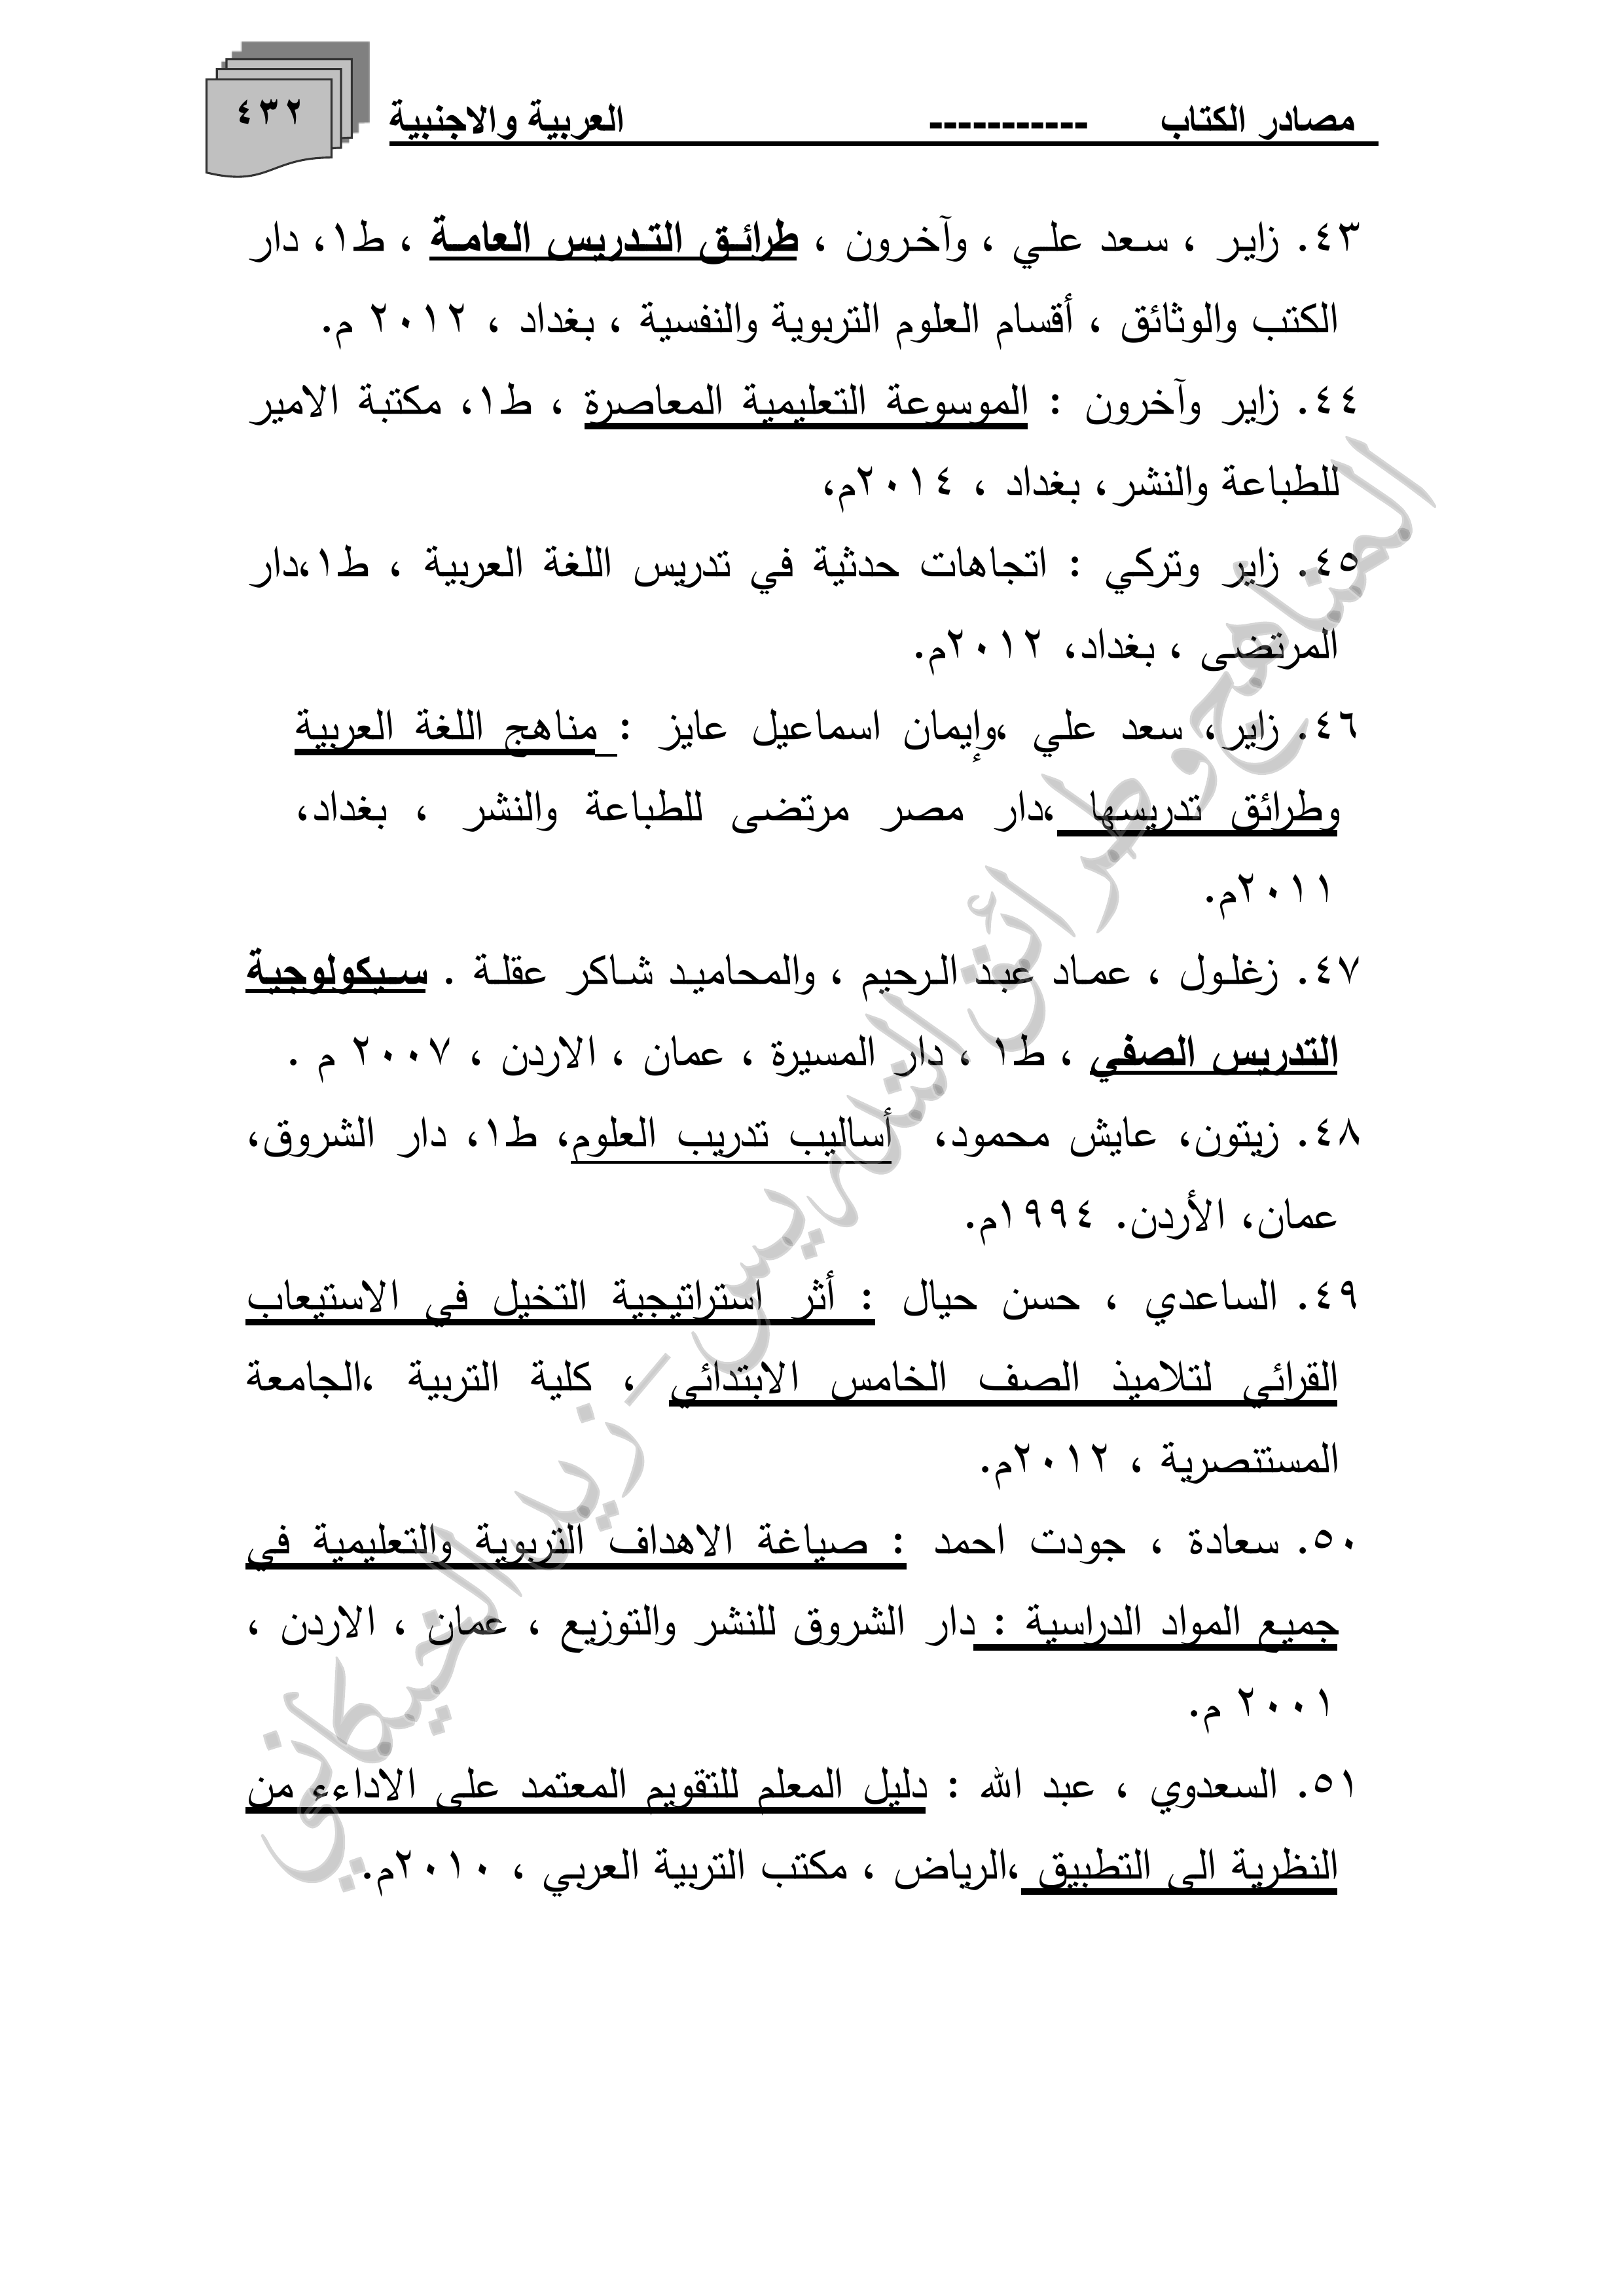 مصادر الكتاب ----------- العربية والاجنبية ٤٣٢
٤٣. زاير ، سعد علي ، وآخرون ، طرائق التدريس العامة ، ط١، دار
الكتب والوثائق ، أقسام العلوم التربوية والنفسية ، بغداد ، ٢٠١٢ م.
٤٤. زاير وآخرون : الموسوعة التعليمية المعاصرة ، ط١، مكتبة الامير
للطباعة والنشر، بغداد ، ٢٠١٤م،
٤٥. زاير وتركي : اتجاهات حدثية في تدريس اللغة العربية ، ط١،دار
المرتضى ، بغداد، ٢٠١٢م.
٤٦. زاير، سعد علي ،وإيمان اسماعيل عايز : مناهج اللغة العربية
وطرائق تدريسها ،دار مصر مرتضى للطباعة والنشر ، بغداد،
٢٠١١م.
٤٧. زغلول ، عماد عبد الرحيم ، والمحاميد شاكر عقلة . سيكولوجية
التدريس الصفي ، ط١ ، دار المسيرة ، عمان ، الاردن ، ٢٠٠٧ م .
٤٨. زيتون، عايش محمود، أساليب تدريب العلوم، ط١، دار الشروق،
عمان، الأردن. ١٩٩٤م.
٤٩. الساعدي ، حسن حيال : أثر استراتيجية التخيل في الاستيعاب
القرائي لتلاميذ الصف الخامس الابتدائي ، كلية التربية ،الجامعة
المستنصرية ، ٢٠١٢م.
٥٠. سعادة ، جودت احمد : صياغة الاهداف التربوية والتعليمية في
جميع المواد الدراسية : دار الشروق للنشر والتوزيع ، عمان ، الاردن ،
٢٠٠١ م.
٥١. السعدوي ، عبد الله : دليل المعلم للتقويم المعتمد على الاداءء من
النظرية الى التطبيق ،الرياض ، مكتب التربية العربي ، ٢٠١٠م.
المناهج وطرائق التدريس – زيد الخيكاني